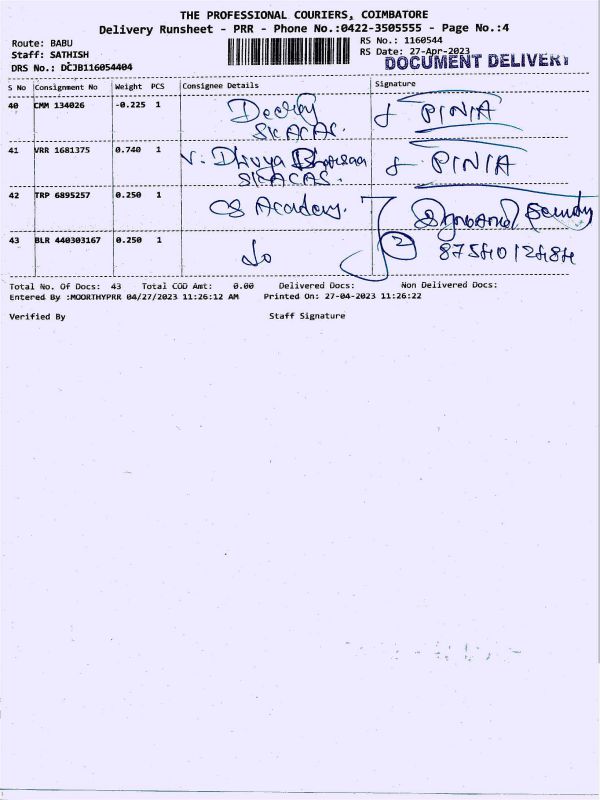 THE PROFESSIONAL COURIERS, COIMBATORE
Delivery Runsheet - PRR - Phone No.:0422-3505555 - Page No.:4
Route: BABU
Staff: SATHISH
DRS No.: DCJB116054404
RS No.: 1160544
RS Date: 27-Apr-2023
DOCUMENT DELIVERY
S No Consignment No Weight PCS Consignee Details Signature
40 CMM 134026 -0.225 1
SKACAS.
41 VRR 1681375 0.740 1 V. Dhivya
SKACAS.
42 TRP 6895257 0.250 1 CS Academy.
43 BLR 440303167 0.250 1 do 2
Total No. Of Docs: 43 Total COD Amt: 0.00 Delivered Docs: Non Delivered Docs:
Entered By :MOORTHYPRR 04/27/2023 11:26:12 AM Printed On: 27-04-2023 11:26:22
Verified By Staff Signature